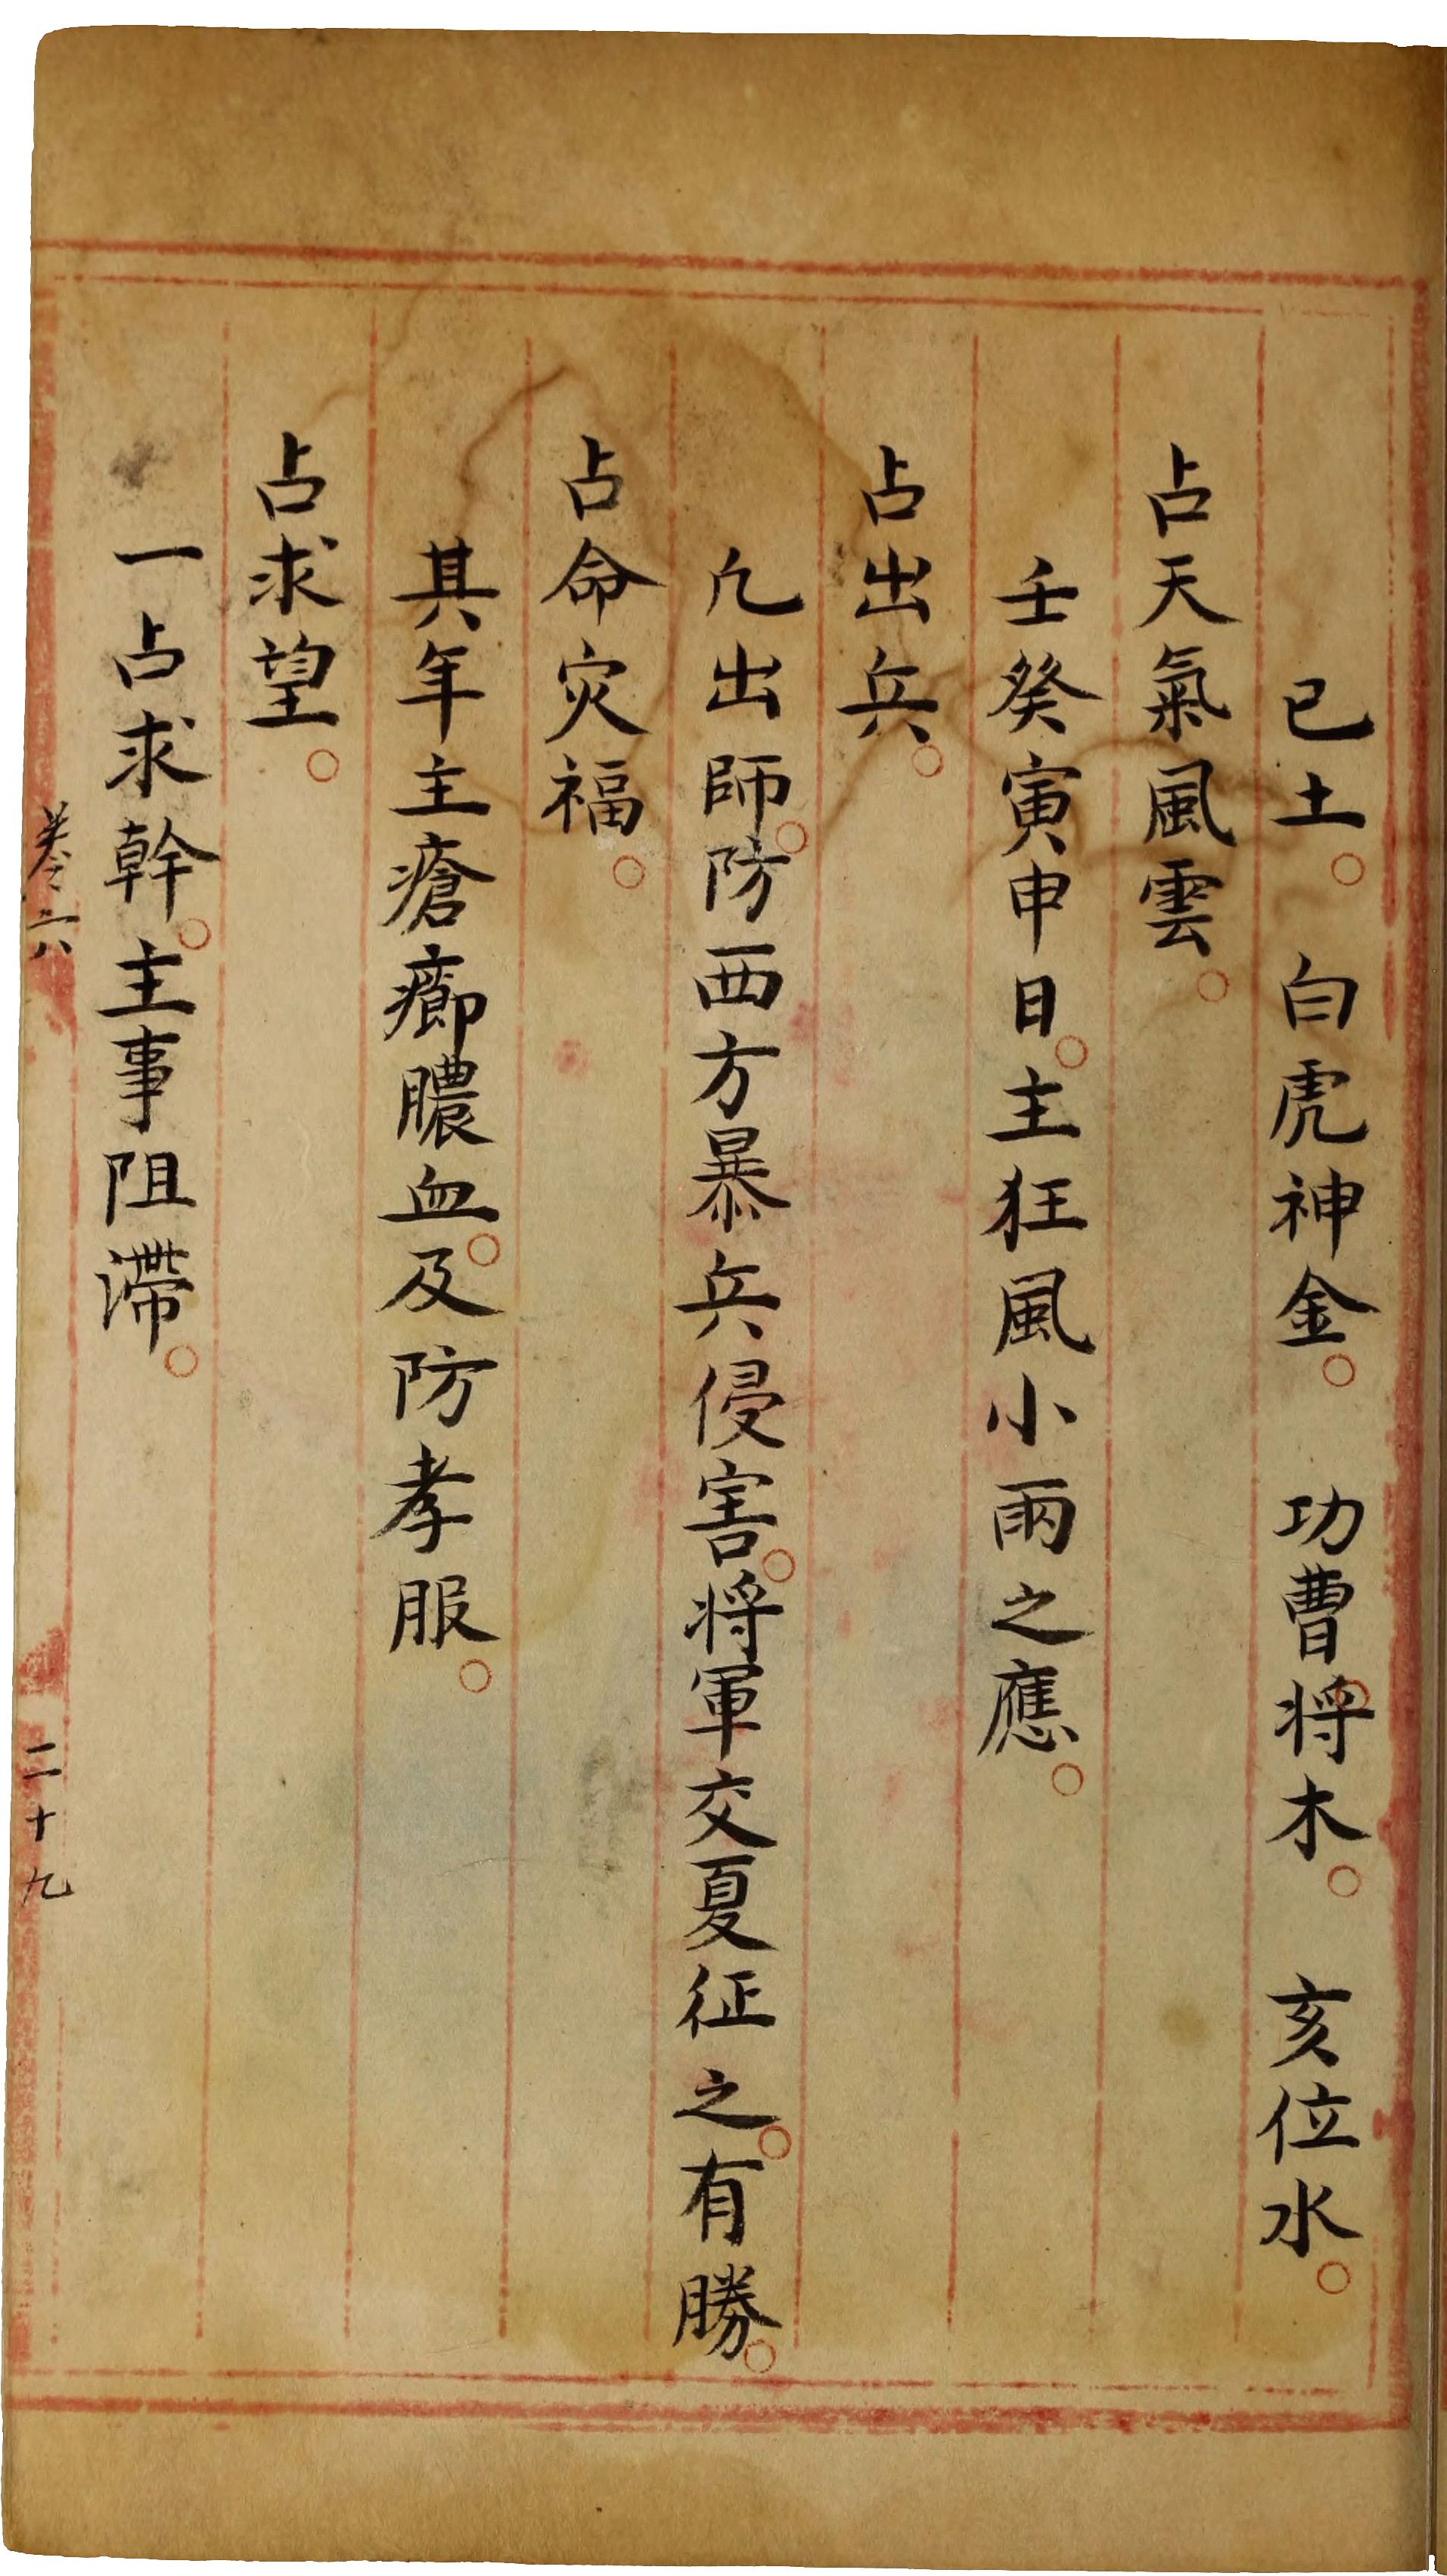 已土。　白虎神金。　功曹。将木。　亥位水。
占天氣風雲。
壬癸寅申日。主狂風小雨之應。
占出兵。
凢出師。防西方暴兵侵害。将軍交夏征之。有勝。
占命灾福。
其年主瘡癤膿血。及防孝服。
占求望。
一占求幹。主事阻滯。
卷六
二十九